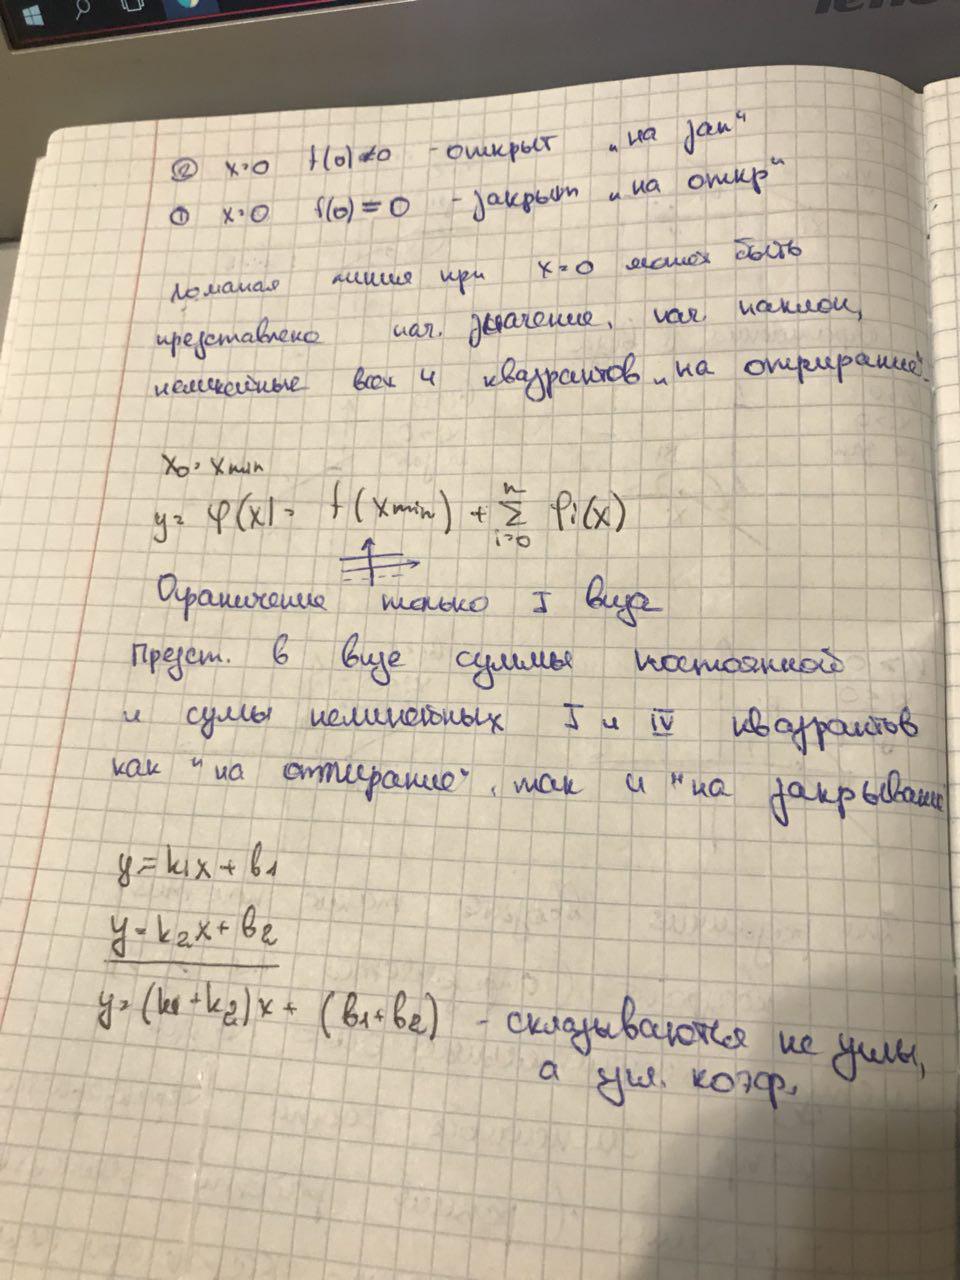 ② x=0 f(0)≠0 - открыт „на зак"
① x=0 f(0)=0 - закрыт „на откр"
Ломаная линия при x=0 может быть
представлено нач. значение, нач. наклон,
нелинейные всех 4 квадрантов „на отпирание"
x₀ = xmin
y = φ(x) = f(xmin) + Σ fi(x)
n
i=0
Ограничение только I вида
Предст. в виде суммы постоянной
и суммы нелинейных I и IV квадрантов
как "на отпирание", так и "на закрывание
y=k₁x+b₁
y=k₂x+b₂
y=(k₁+k₂)x+(b₁+b₂) - складываются не углы,
а угл. коэф.